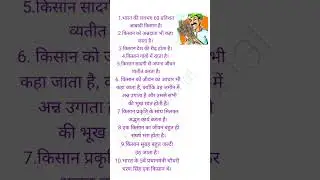 5.किसान सादग
व्यतीत करता है।
6. किसान को
कहा जाता है,
अन्न उगाता
की भूख शांत
7.किसान प्रकृति
1.भारत की लगभग 60 प्रतिशत
आबादी किसान है।
2.किसान को अन्नदाता भी कहा
जाता है।
3.किसान देश की रीढ़ होता है।
4.किसान गांवों में रहता है।
5.किसान सादगी से अपना जीवन
व्यतीत करता है।
6. किसान को जीवन का आधार भी
कहा जाता है, क्योंकि वह जमीन में
अन्न उगाता है और उससे सभी
की भूख शांत होती है।
7.किसान प्रकृति के साथ मिलकर
अद्भुत कार्य करता है।
8.एक किसान का जीवन बहुत ही
संघर्ष भरा होता है।
9.किसान सुबह बहुत जल्दी
उठ जाता है।
10.भारत के 5वें प्रधानमंत्री चौधरी
चरण सिंह एक किसान थे।